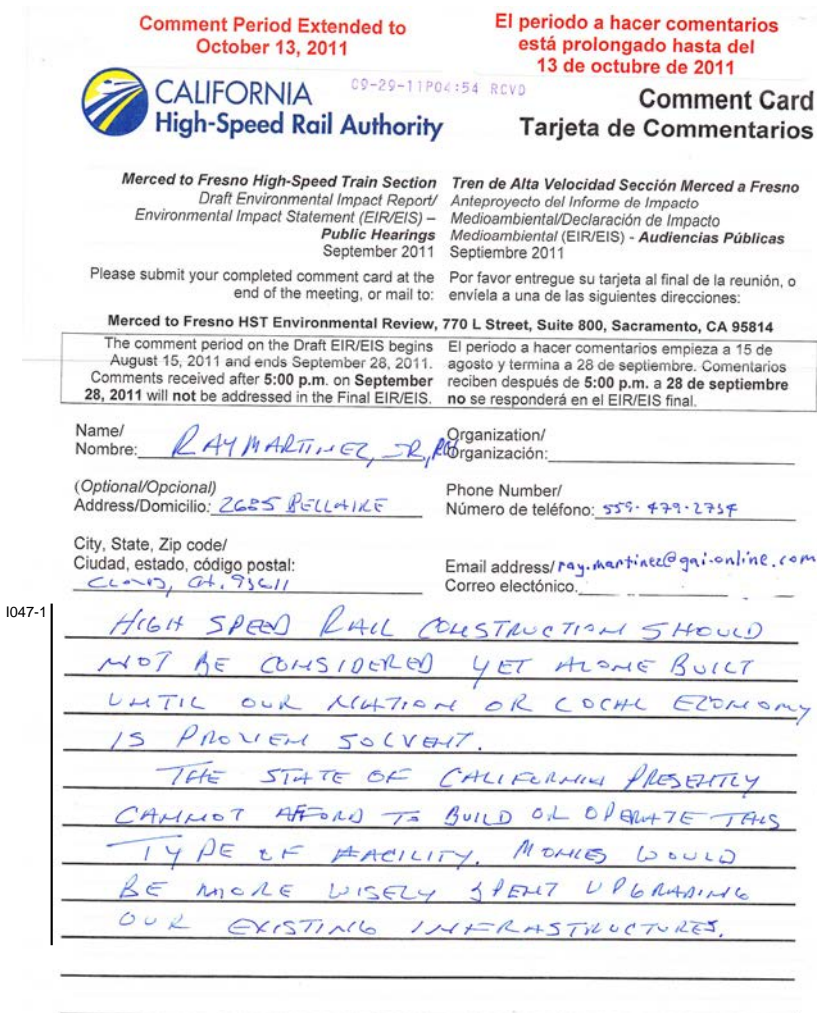 Comment Period Extended to
October 13, 2011
El periodo a hacer comentarios
está prolongado hasta del
13 de octubre de 2011
09-29-11P04:54 RCVD
CALIFORNIA
High-Speed Rail Authority
Comment Card
Tarjeta de Commentarios
Merced to Fresno High-Speed Train Section
Draft Environmental Impact Report/
Environmental Impact Statement (EIR/EIS) –
Public Hearings
September 2011
Tren de Alta Velocidad Sección Merced a Fresno
Anteproyecto del Informe de Impacto
Medioambiental/Declaración de Impacto
Medioambiental (EIR/EIS) - Audiencias Públicas
Septiembre 2011
Please submit your completed comment card at the
end of the meeting, or mail to:
Por favor entregue su tarjeta al final de la reunión, o
envíela a una de las siguientes direcciones:
Merced to Fresno HST Environmental Review, 770 L Street, Suite 800, Sacramento, CA 95814
The comment period on the Draft EIR/EIS begins
August 15, 2011 and ends September 28, 2011.
Comments received after 5:00 p.m. on September
28, 2011 will not be addressed in the Final EIR/EIS.
El periodo a hacer comentarios empieza a 15 de
agosto y termina a 28 de septiembre. Comentarios
reciben después de 5:00 p.m. a 28 de septiembre
no se responderá en el EIR/EIS final.
Name/
Nombre: RAY MARTINEZ, JR,
Organization/
Organización:
(Optional/Opcional)
Address/Domicilio: 2685 BELLAIRE
Phone Number/
Número de teléfono: 559-479-2754
City, State, Zip code/
Ciudad, estado, código postal:
CLOVIS, CA. 93611
Email address/ ray.martinez@gai-online.com
Correo electónico.
I047-1
HIGH SPEED RAIL CONSTRUCTION SHOULD
NOT BE CONSIDERED YET ALONE BUILT
UNTIL OUR NATION OR LOCAL ECONOMY
IS PROVEN SOLVENT.
THE STATE OF CALIFORNIA PRESENTLY
CANNOT AFFORD TO BUILD OR OPERATE THIS
TYPE OF FACILITY. MONIES WOULD
BE MORE WISELY SPENT UPGRADING
OUR EXISTING INFRASTRUCTURES.